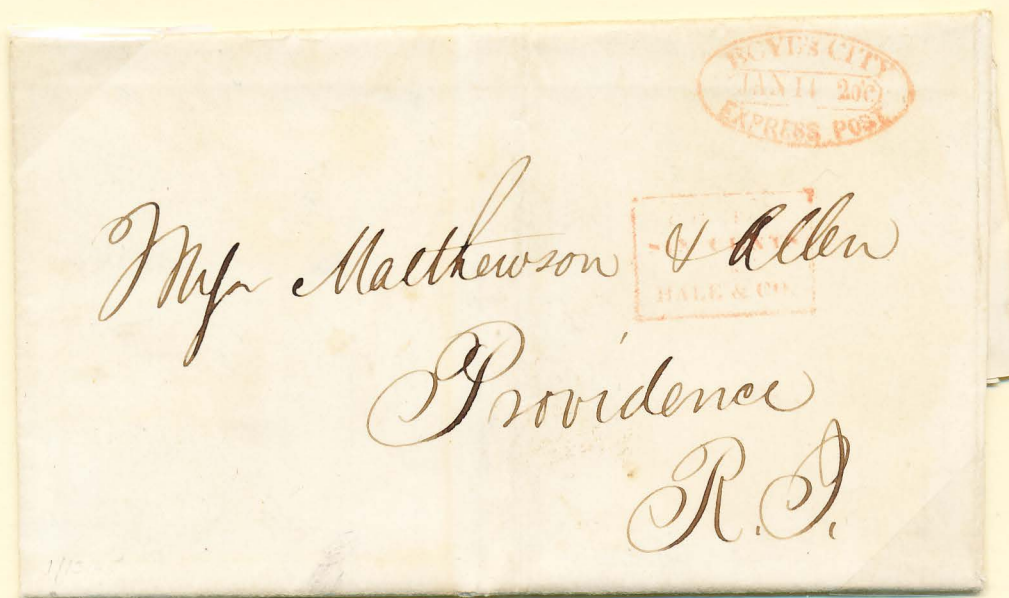 BOYD'S CITY
JAN 14 20C
EXPRESS POST
CENTS
HALE & CO.
Mess Matthewson & Allen
Providence
R.I.
1/13